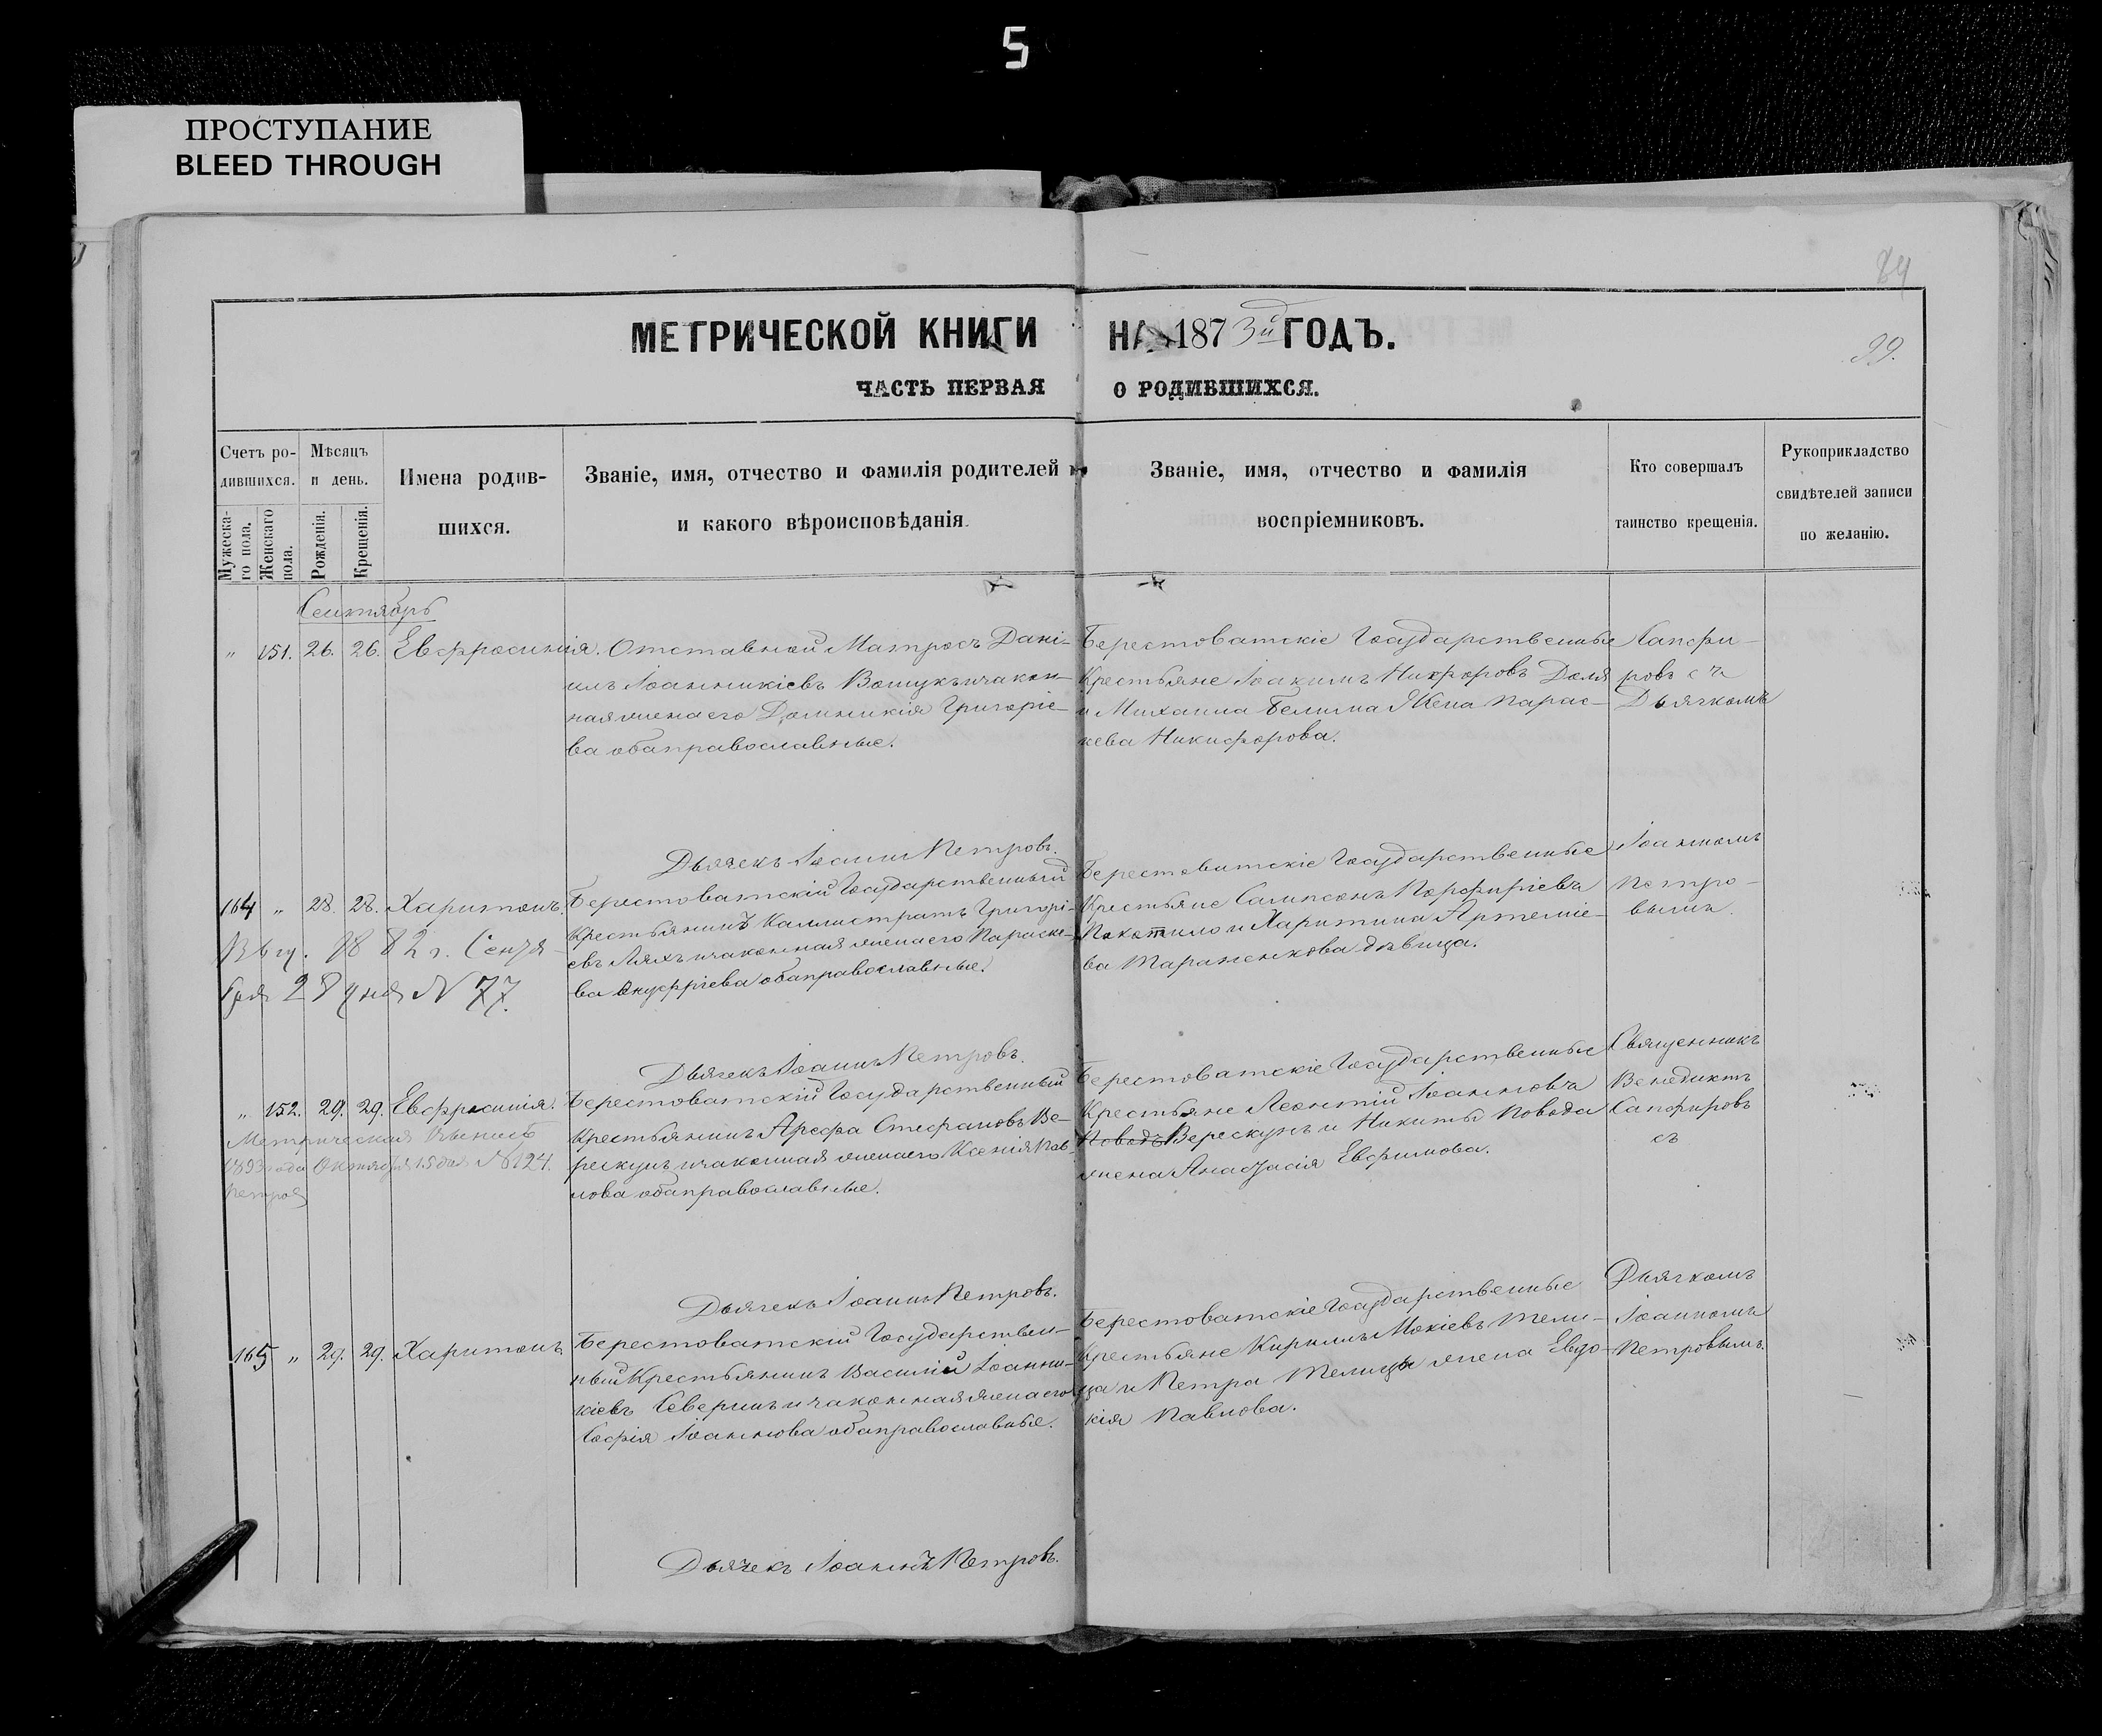 5
ПРОСТУПАНИЕ
BLEED THROUGH
84
МЕТРИЧЕСКОЙ КНИГИ НА 1873й ГОДЪ.
99.
ЧАСТЬ ПЕРВАЯ О РОДИВШИХСЯ.
Счетъ ро-
дившихся.
Мужеска-
го пола.
Женскаго
пола.
Мѣсяцъ
и день.
Рожденія.
Крещенія.
Имена родив-
шихся.
Званіе, имя, отчество и фамилія родителей
и какого вѣроисповѣданія.
Званіе, имя, отчество и фамилія
воспріемниковъ.
Кто совершалъ
таинство крещенія.
Рукоприкладство
свидѣтелей записи
по желанію.
Сентябрь
" 151. 26. 26. Евфросинія.
Отставной Матросъ Дані-
илъ Іоанникіевъ и закон-
ная жена его Домникія Григоріе-
ва оба православные.
Берестоватскіе Государственные
Крестьяне Іоакимъ Никифоровъ Доля
и Михаила Белима Жена Парас-
кева Никифорова.
Сапфи-
ровъ съ
Дьячкомъ
Дьячекъ Іоаннъ Петровъ.
164 " 28. 28. Харитонъ.
Выд. 1882 г. Сентя-
бря 28 дня N 77.
Берестоватскій Государственный
Крестьянинъ Каллистратъ Григорі-
евъ Ляхъ и законная жена его Параске-
ва Онуфріева оба православные.
Берестоватскіе Государственные
Крестьяне Сампсонъ Порфиріевъ
Покотило и Харитина Артеміе-
ва Тараненкова дѣвица.
Іоанномъ
Петро-
вымъ.
Дьячекъ Іоаннъ Петровъ.
" 152. 29. 29. Евфросинія.
Метрическая Выпись
1893 года Октября 15 дня N 124.
Петровъ
Берестоватскій Государственный
Крестьянинъ Арефа Стефановъ Ве-
рескунъ и законная жена его Ксенія Пав-
лова оба православные.
Берестоватскіе Государственные
Крестьяне Леонтій Іоанновъ
Поводъ Верескунъ и Никиты Повода
жена Анастасія Евфимова.
Священникъ
Венедиктъ
Сапфировъ
съ
Дьячекъ Іоаннъ Петровъ.
165 " 29. 29. Харитонъ
Берестоватскій Государствен-
ный Крестьянинъ Василій Іоанни-
кіевъ Северинъ и законная жена его
Софія Іоаннова оба православные.
Берестоватскіе Государственные
Крестьяне Кириллъ Мокіевъ Тели-
ца и Петра Телицы жена Евдо-
кія Павлова.
Дьячкомъ
Іоанномъ
Петровымъ.
Дьячекъ Іоаннъ Петровъ.